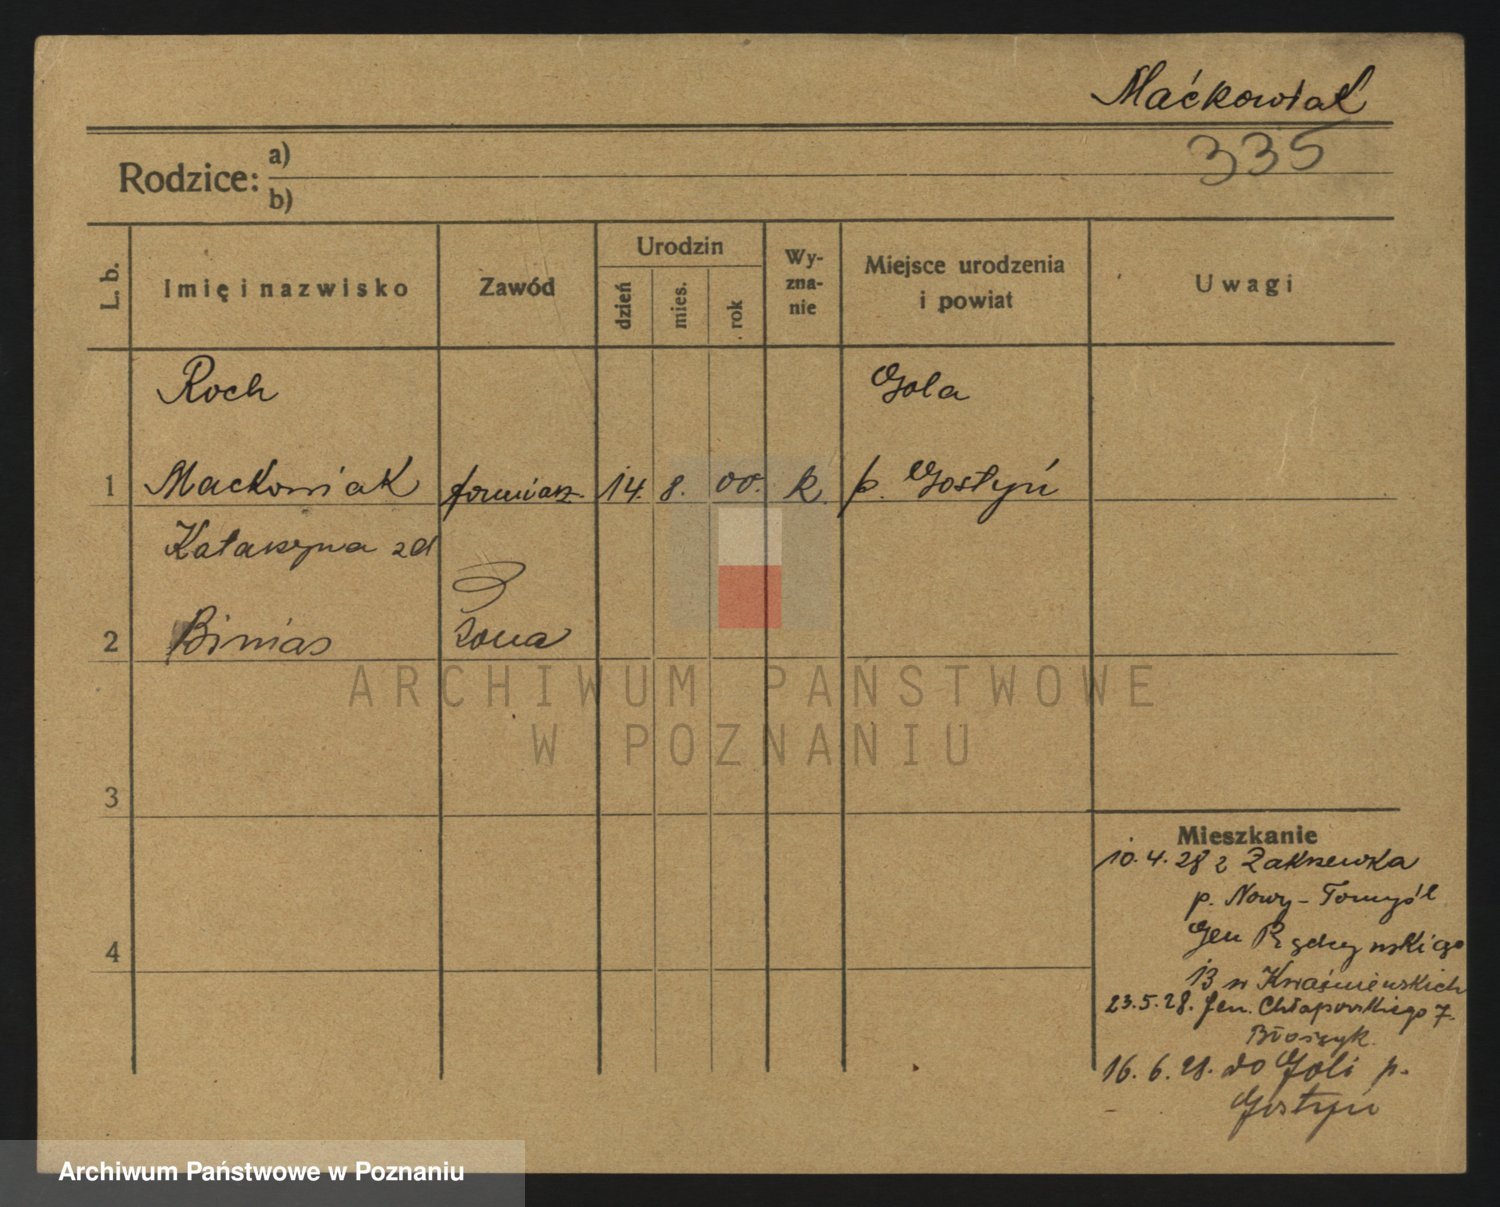 Maćkowiak
335
Rodzice: a)
b)
L. b.
Imię i nazwisko
Zawód
Urodzin
dzień
mies.
rok
Wy-
zna-
nie
Miejsce urodzenia
i powiat
Uwagi
Roch
Gola
1 Maćkowiak 14. 8. 00. k. p. Gostyń
Katarzyna zd
2 Binias żona
3
4
Mieszkanie
10.4.28 z Zakrzewka
p. Nowy-Tomyśl
Gen Prądzyńskiego
13 w Kwaśniewskich
23.5.28. Gen. Chłapowskiego 7.
Błoszyk.
16.6.28. do Goli p.
Gostyń
ARCHIWUM PAŃSTWOWE
W POZNANIU
Archiwum Państwowe w Poznaniu